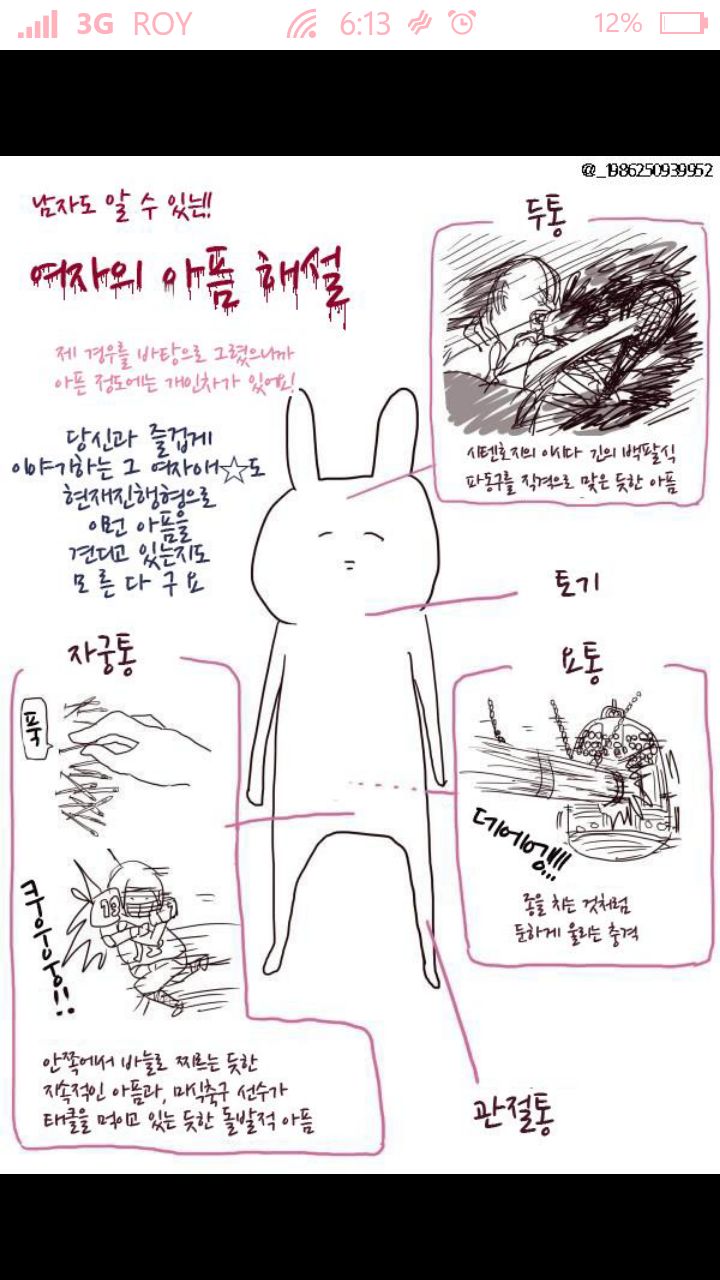 3G ROY 6:13 12%
@_1986250939952
남자도 알 수 있는!!
여자의 아픔 해설
제 경우를 바탕으로 그렸으니까
아픈 정도에는 개인차가 있어요!
당신과 즐겁게
이야기하는 그 여자애☆도
현재진행형으로
이런 아픔을
견디고 있는지도
모른다구요
두통
시텐호지의 이시다 긴의 백팔식
파동구를 직격으로 맞은 듯한 아픔
토기
자궁통
푹
쿠우우웅!!
13
안쪽에서 바늘로 찌르는 듯한
지속적인 아픔과, 미식축구 선수가
태클을 먹이고 있는 듯한 돌발적 아픔
요통
데에에엥!!!
종을 치는 것처럼
둔하게 울리는 충격
관절통